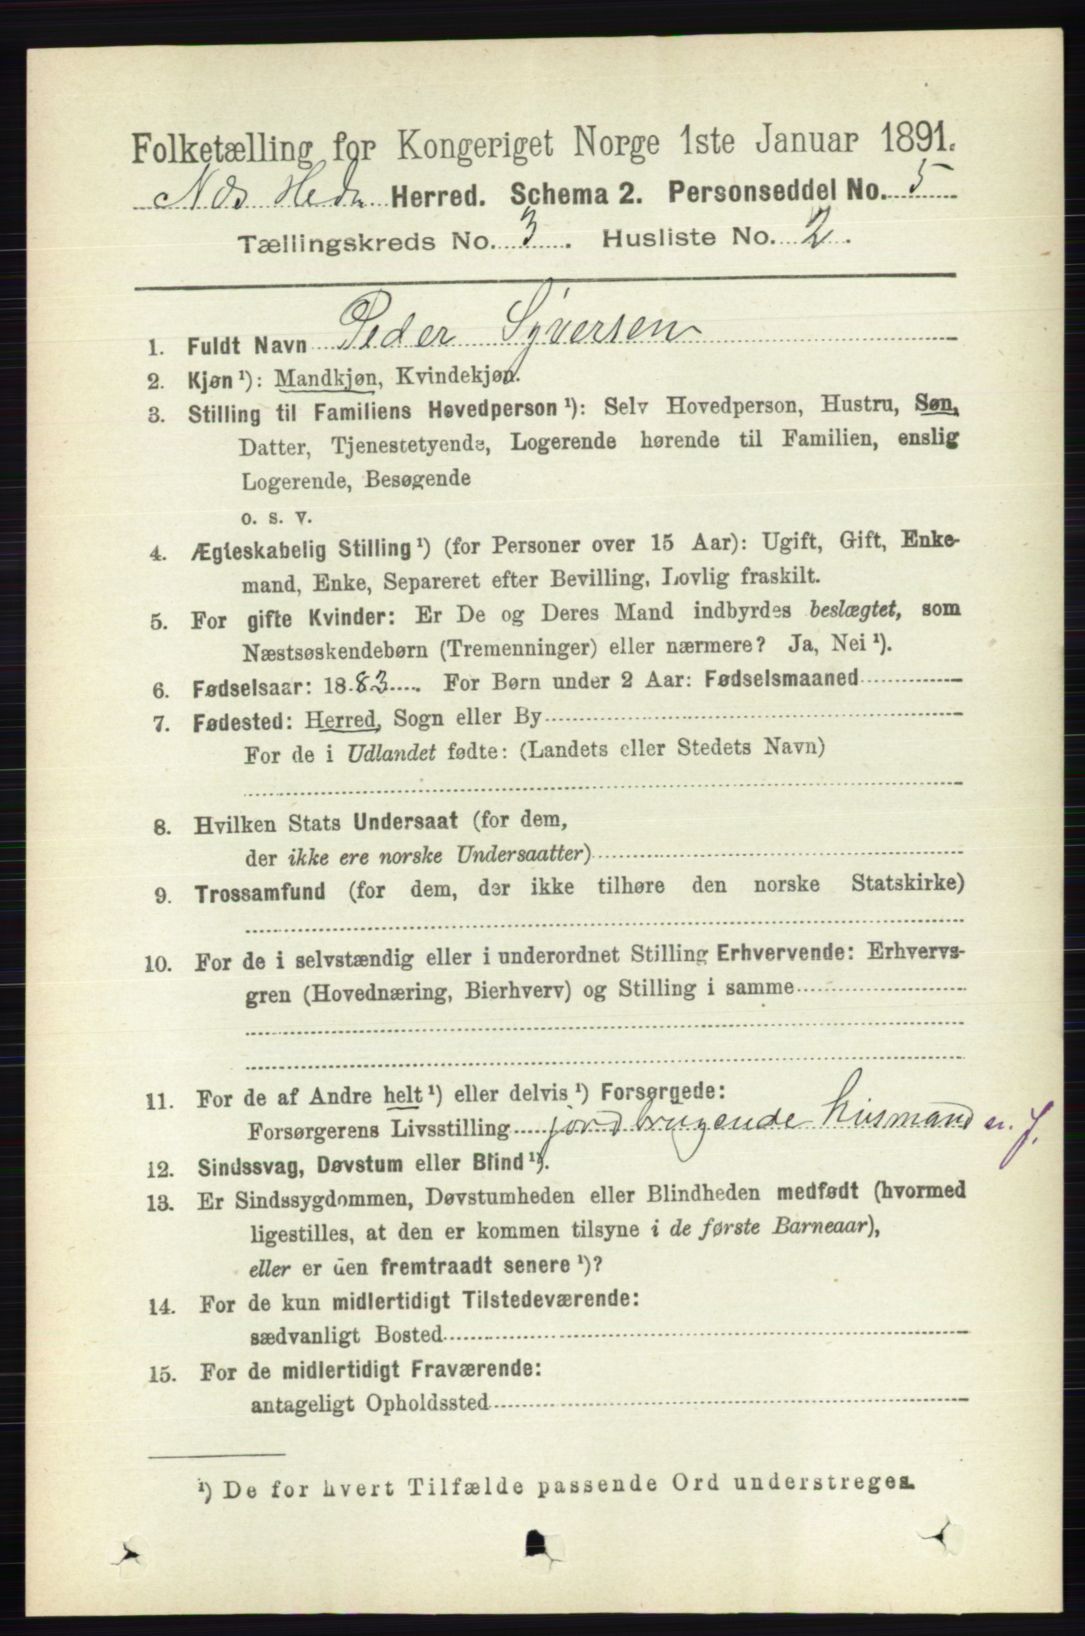 Folketælling for Kongeriget Norge 1ste Januar 1891.
Næs Hedm Herred. Schema 2. Personseddel No. 5
Tællingskreds No. 3. Husliste No. 2.
1. Fuldt Navn Peder Syversen
2. Kjøn ¹): Mandkjøn, Kvindekjøn.
3. Stilling til Familiens Hovedperson ¹): Selv Hovedperson, Hustru, Søn,
Datter, Tjenestetyende, Logerende hørende til Familien, enslig
Logerende, Besøgende
o. s. v.
4. Ægteskabelig Stilling ¹) (for Personer over 15 Aar): Ugift, Gift, Enke-
mand, Enke, Separeret efter Bevilling, Lovlig fraskilt.
5. For gifte Kvinder: Er De og Deres Mand indbyrdes beslægtet, som
Næstsøskendebørn (Tremenninger) eller nærmere? Ja, Nei ¹).
6. Fødselsaar: 1883. For Børn under 2 Aar: Fødselsmaaned
7. Fødested: Herred, Sogn eller By
For de i Udlandet fødte: (Landets eller Stedets Navn)
8. Hvilken Stats Undersaat (for dem,
der ikke ere norske Undersaatter)
9. Trossamfund (for dem, der ikke tilhøre den norske Statskirke)
10. For de i selvstændig eller i underordnet Stilling Erhvervende: Erhvervs-
gren (Hovednæring, Bierhverv) og Stilling i samme
11. For de af Andre helt ¹) eller delvis ¹) Forsørgede:
Forsørgerens Livsstilling jordbrugende husmand m. J.
12. Sindssvag, Døvstum eller Blind ¹).
13. Er Sindssygdommen, Døvstumheden eller Blindheden medfødt (hvormed
ligestilles, at den er kommen tilsyne i de første Barneaar),
eller er den fremtraadt senere ¹)?
14. For de kun midlertidigt Tilstedeværende:
sædvanligt Bosted
15. For de midlertidigt Fraværende:
antageligt Opholdssted
¹) De for hvert Tilfælde passende Ord understreges.